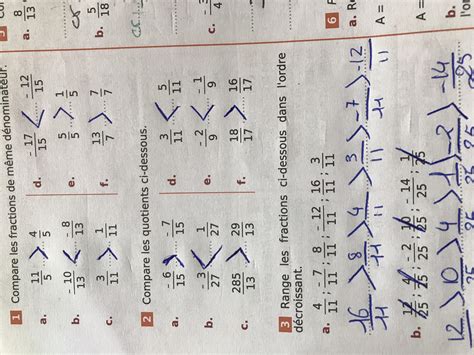 1 Compare les fractions de même dénominateur.
a. 11/5 > 4/5 d. -17/15 < -12/15
b. -10/13 < -8/13 e. 5/5 > 1/5
c. 3/11 > 1/11 f. 13/7 > 7/7
2 Compare les quotients ci-dessous.
a. -6/15 > -7/15 d. 3/11 < 5/11
b. -3/27 < 1/27 e. -2/9 < -1/9
c. 285/13 > 29/13 f. 18/17 > 16/17
3 Range les fractions ci-dessous dans l'ordre
décroissant.
a. 4/11 ; -7/11 ; 8/11 ; -12/11 ; 16/11 ; 3/11
16/11 > 8/11 > 4/11 > 3/11 > -7/11 > -12/11
b. 12/25 ; 4/25 ; -2/25 ; 10/25 ; -14/25 ; 1/25
12/25 > 10/25 > 4/25 > 1/25 > -2/25 > -14/25
8/13
b. 5/18
c.
6
a.
A =
A =
b.